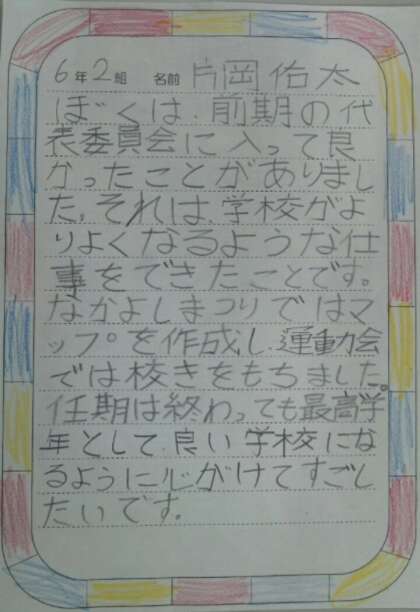 6年2組 名前 片岡佑太
ぼくは、前期の代
表委員会に入って良
かったことがありまし
た。それは、学校がよ
りよくなるような仕
事をできたことです。
なかよしまつりではマ
ップを作成し、運動会
では校きをもちました。
任期は終わっても最高学
年として、良い学校にな
るように心がけてすごし
たいです。